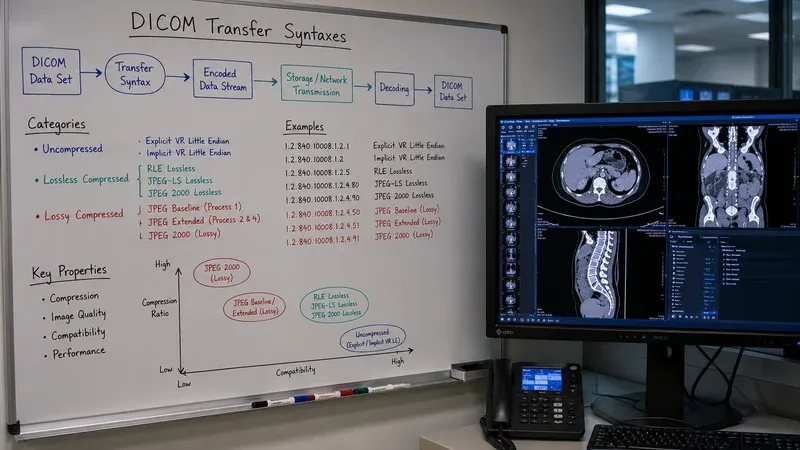 DICOM Transfer Syntaxes
DICOM
Data Set
Transfer
Syntax
Encoded
Data Stream
Storage / Network
Transmission
Decoding
DICOM
Data Set
Categories
• Uncompressed
• Explicit VR Little Endian
• Implicit VR Little Endian
• Lossless Compressed
RLE Lossless
JPEG-LS Lossless
JPEG 2000 Lossless
• Lossy Compressed
JPEG Baseline (Process 1)
JPEG Extended (Process 2 & 4)
JPEG 2000 (Lossy)
Examples
1.2.840.10008.1.2.1 Explicit VR Little Endian
1.2.840.10008.1.2 Implicit VR Little Endian
1.2.840.10008.1.2.5 RLE Lossless
1.2.840.10008.1.2.4.80 JPEG-LS Lossless
1.2.840.10008.1.2.4.90 JPEG 2000 Lossless
1.2.840.10008.1.2.4.50 JPEG Baseline (Lossy)
1.2.840.10008.1.2.4.51 JPEG Extended (Lossy)
1.2.840.10008.1.2.4.91 JPEG 2000 (Lossy)
Key Properties
• Compression
• Image Quality
• Compatibility
• Performance
High
Compression
Ratio
Low
JPEG 2000
(Lossy)
JPEG Baseline/
Extended (Lossy)
RLE Lossless
JPEG-LS Lossless
JPEG 2000 Lossless
Uncompressed
(Explicit/Implicit VR LE)
Low
Compatibility
High